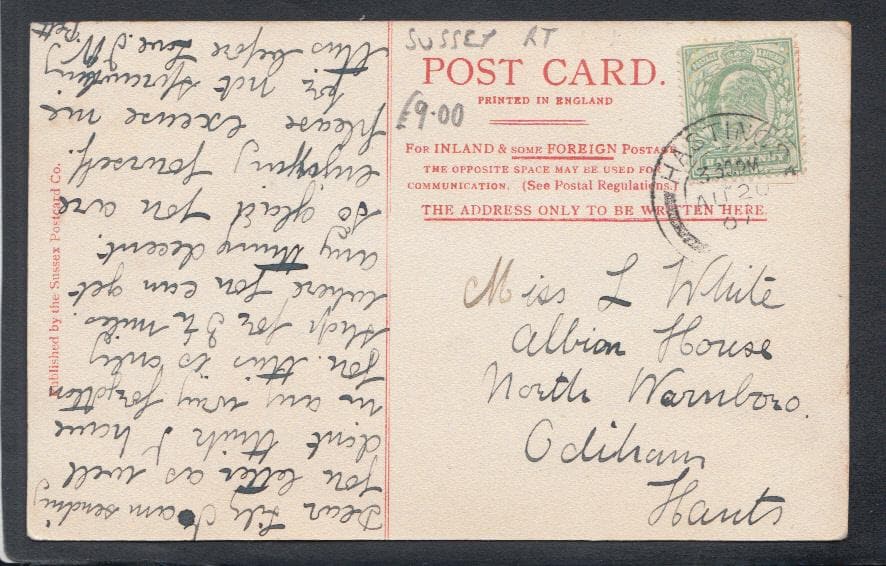 SUSSEX RT
£9.00
POST CARD.
PRINTED IN ENGLAND
FOR INLAND & SOME FOREIGN POSTAGE
THE OPPOSITE SPACE MAY BE USED FOR
COMMUNICATION. (See Postal Regulations.)
THE ADDRESS ONLY TO BE WRITTEN HERE.
HASTINGS
3.30PM
AU 20
07
HALFPENNY
Miss L White
Albion House
North Warnboro.
Odiham
Hants
Published by the Sussex Postcard Co.
Dear Lily I am sending
you letter as well
dont think I have
in any way forgotten
you. this is only
shop for 3½ miles.
where you can get
any thing decent.
So glad you are
enjoying yourself.
Please excuse me
for not
this before Love J W
Pett